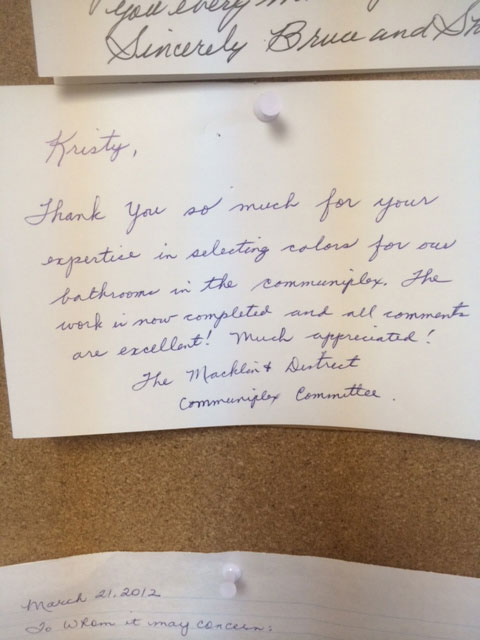 you every
Sincerely Bruce and Sh
Kristy,
Thank You so much for your
expertise in selecting colors for our
bathrooms in the communiplex. The
work is now completed and all comments
are excellent! Much appreciated!
The Macklin & District
Communiplex Committee.
March 21, 2012
To Whom it may concern: